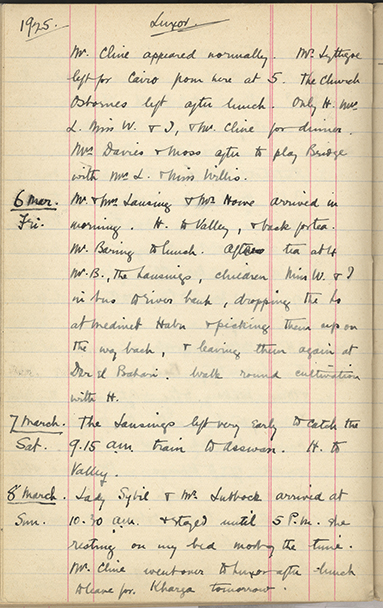 1925. Luxor.
Mr. Cline appeared normally. Mr. Lythgoe
left for Cairo from here at 5. The Church
Osbornes left after lunch. Only H. Mrs
L. Miss W. & I, & Mr. Cline for dinner.
Mrs Davies & Moss after to play Bridge
with Mrs L. & Miss Willis.
6 Mar. Mr. & Mrs Lansing & Mr. Howe arrived in
Fri. morning. H. to Valley, & back for tea.
Mr. Baring to lunch. After tea at 4
Mr. B., the Lansings, children Miss W. & I
in bus to river bank, dropping the Ls
at Medinet Habu & picking them up on
the way back, & leaving them again at
Der el Bahari. Walk round cultivation
with H.
7 March. The Lansings left very early to catch the
Sat. 9.15 am train to Asswan. H. to
Valley.
8 March. Lady Sybil & Mr. Lubbock arrived at
Sun. 10.30 a.m. & stayed until 5 P.m. she
resting on my bed most of the time.
Mr. Cline went over to Luxor after lunch
to leave for Kharga tomorrow.